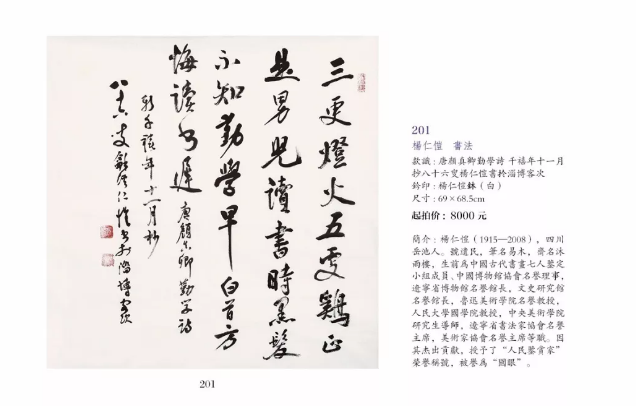 三更燈火五更鷄正
是男兒讀書時黑髮
不知勤學早白首方
悔讀書遲 唐顔真卿勤學詩
千禧年十一月杪
八十六叟仁愷書於淄博客次
201
201
楊仁愷 書法
款識：唐顏真卿勤學詩 千禧年十一月
杪八十六叟楊仁愷書於淄博客次
鈐印：楊仁愷鉥（白）
尺寸：69×68.5cm
起拍价：8000 元
簡介：楊仁愷（1915—2008），四川
岳池人。號遺民，筆名易木，齋名沐
雨樓，生前爲中國古代書畫七人鑒定
小組成員、中國博物館協會名譽理事，
遼寧省博物館名譽館長，文史研究館
名譽館長，魯迅美術學院名譽教授，
人民大學國學院教授，中央美術學院
研究生導師，遼寧省書法家協會名譽
主席，美術家協會名譽主席等職。因
其杰出貢獻，授予了“人民鑒賞家”
榮譽稱號，被譽爲“國眼”。